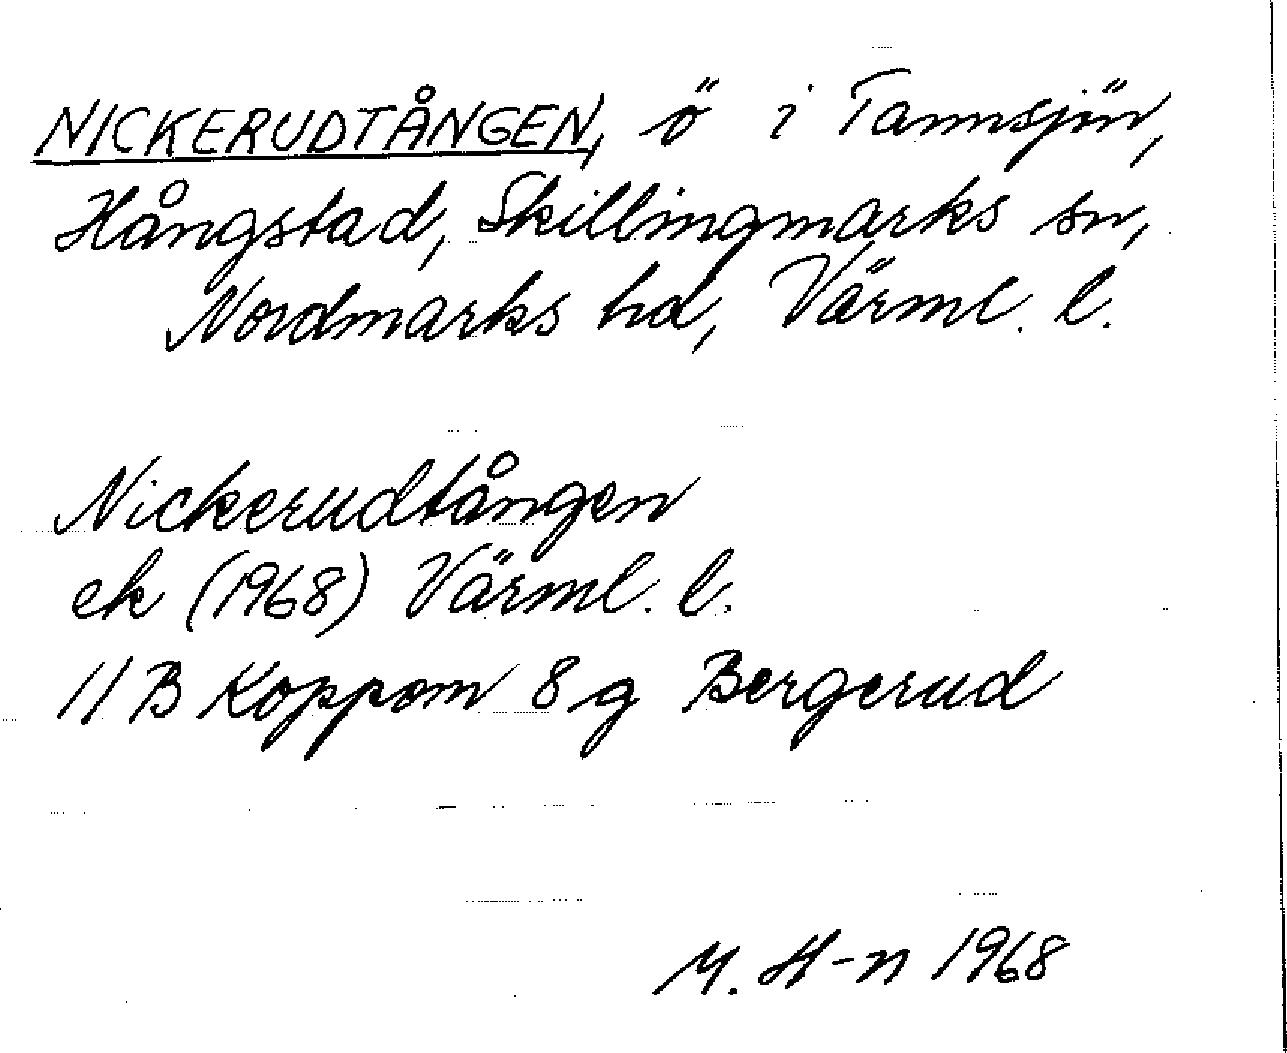 NICKERUDTÅNGEN, ö i Tannsjön,
Hångstad, Skillingmarks sn,
Nordmarks hd, Värml. l.
Nickerudtången
ek (1968) Värml. l.
11B Koppom 8g Bergerud
M. H-n 1968